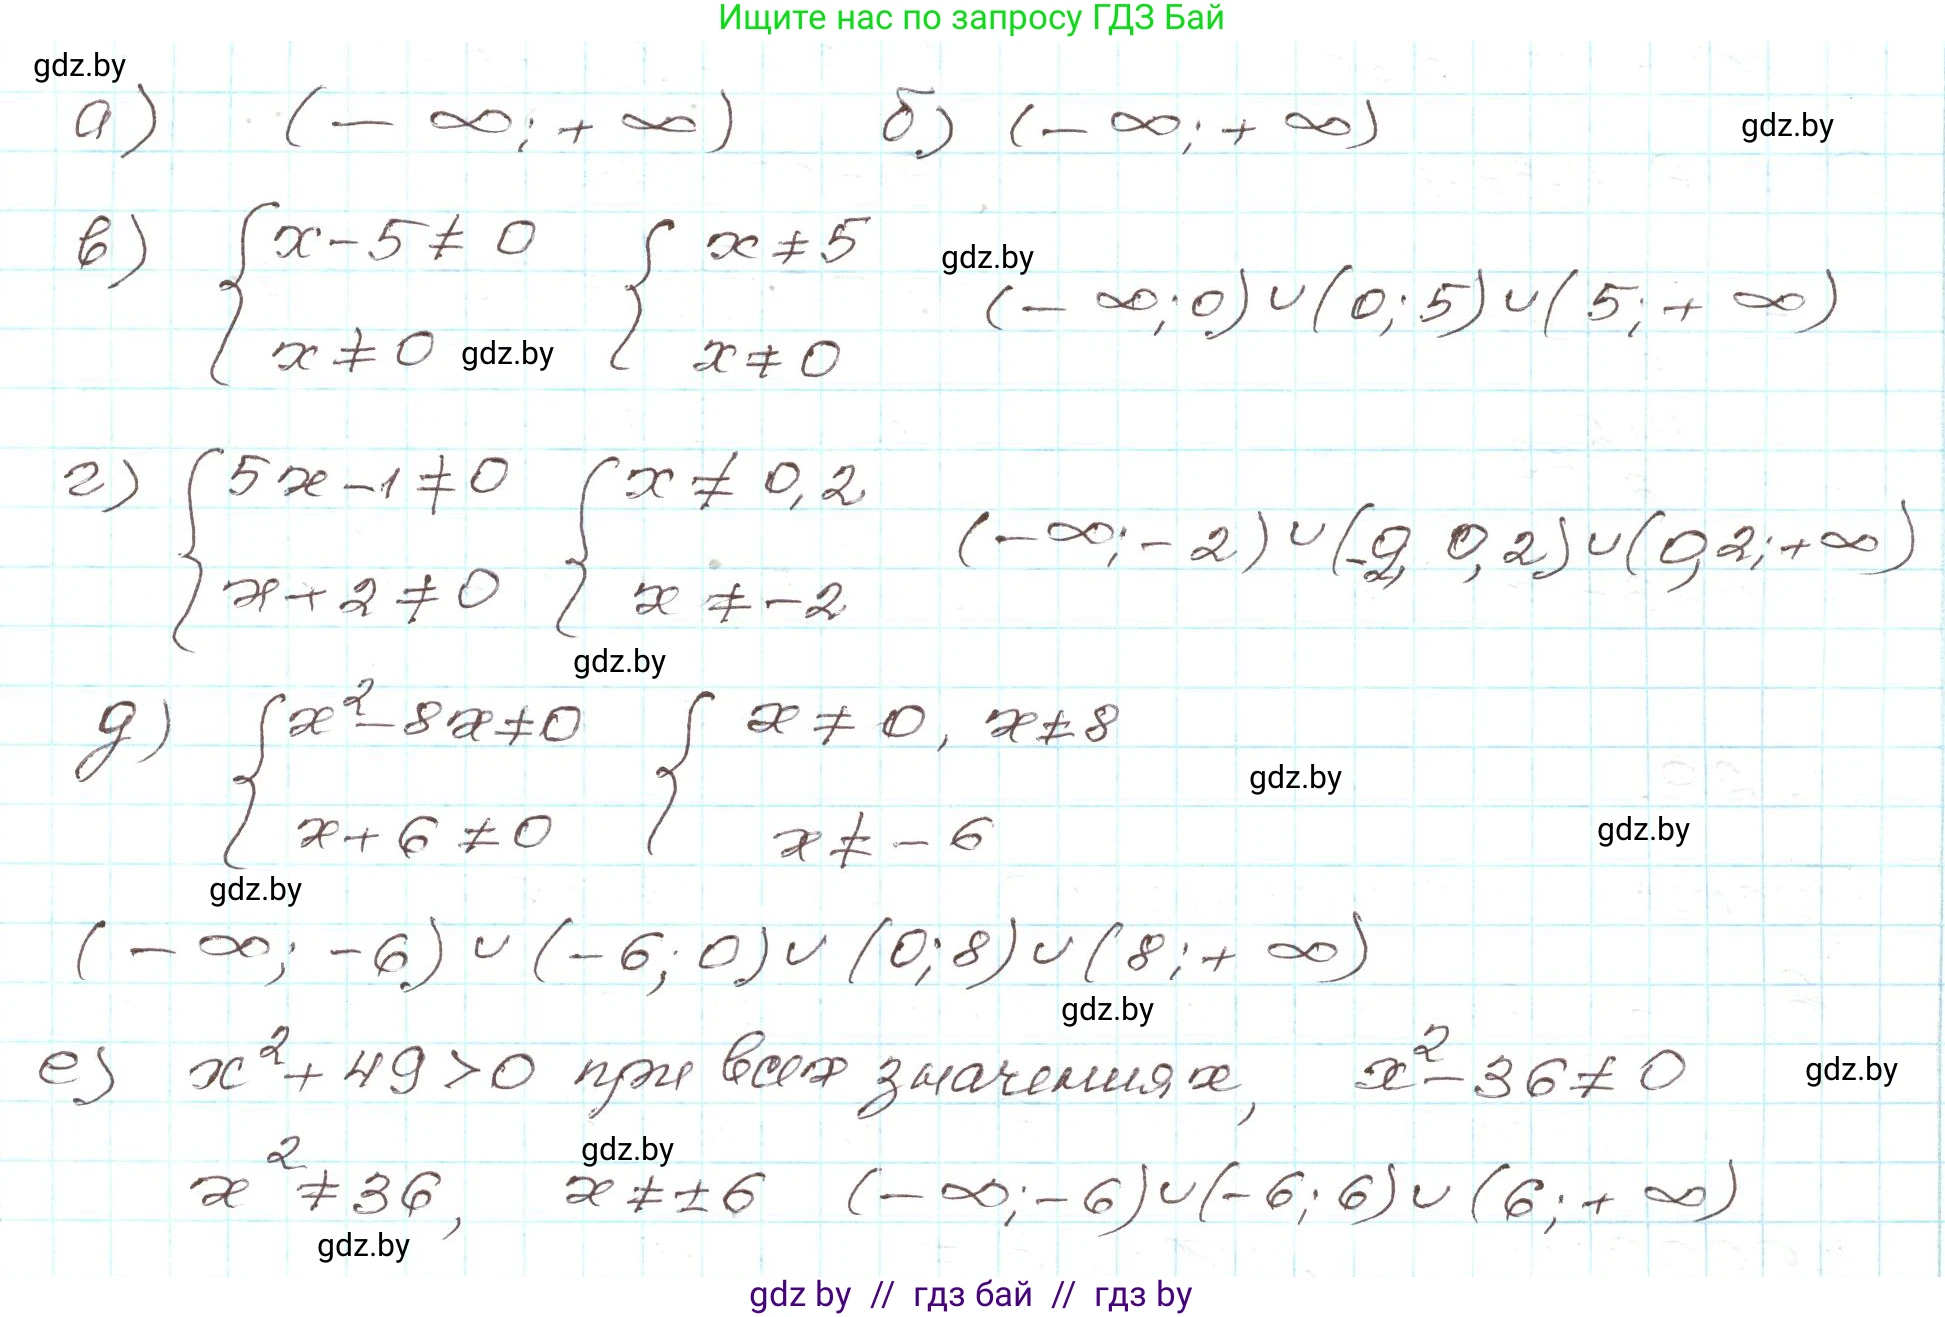 Ищите нас по запросу ГДЗ Бай
gdz.by
а) (− ∞; + ∞) б) (− ∞; + ∞)
gdz.by
в) { x − 5 ≠ 0 { x ≠ 5
gdz.by
(− ∞; 0) ∪ (0; 5) ∪ (5; + ∞)
x ≠ 0 gdz.by x ≠ 0
г) { 5x − 1 ≠ 0 { x ≠ 0,2
(−∞; −2) ∪ (−2, 0,2) ∪ (0,2; +∞)
x + 2 ≠ 0 x ≠ −2
gdz.by
д) { x² − 8x ≠ 0 { x ≠ 0, x ≠ 8
gdz.by
x + 6 ≠ 0 x ≠ − 6
gdz.by
gdz.by
(− ∞; −6) ∪ (−6; 0) ∪ (0; 8) ∪ (8; + ∞)
gdz.by
е) x² + 49 > 0 при всех значениях x, x² − 36 ≠ 0
gdz.by
gdz.by
x² ≠ 36, x ≠ ± 6 (− ∞; −6) ∪ (−6; 6) ∪ (6; + ∞)
gdz.by
gdz by // гдз бай // гдз by